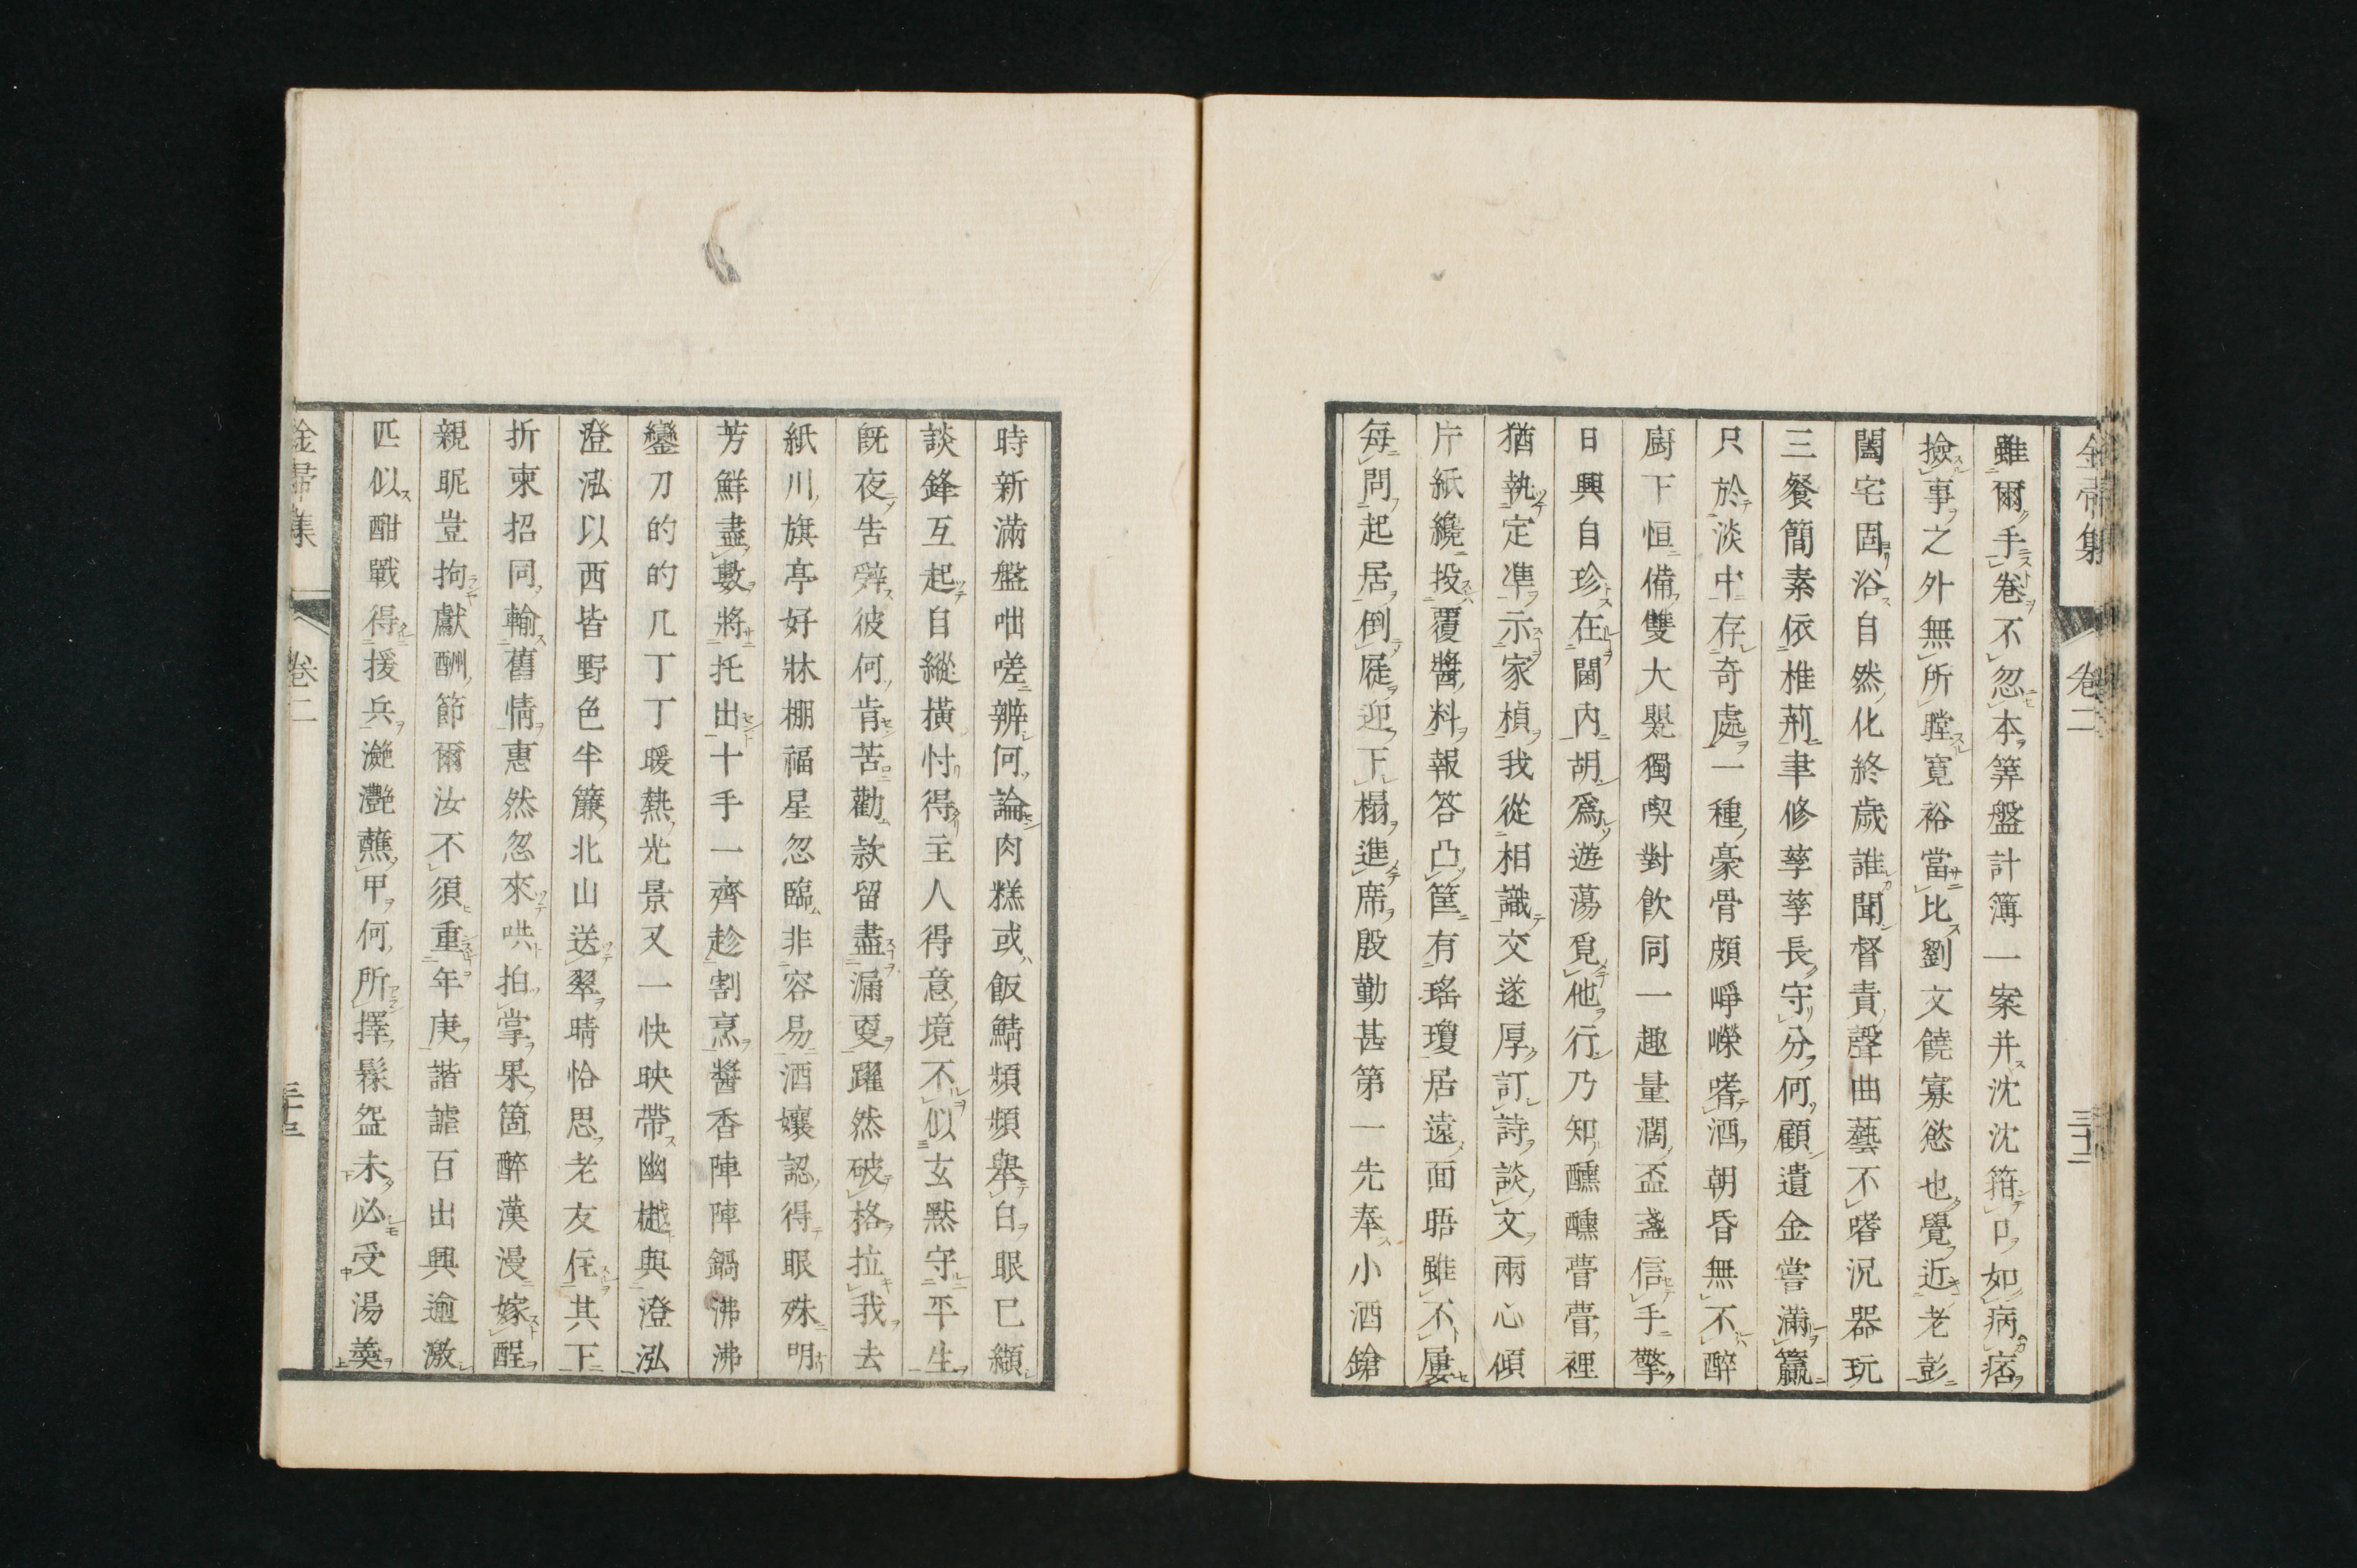 雖爾手卷不忍本筭盤計簿一案并沈沈箝口如病痞
撿事之外無所瞠寛裕當比劉文饒寡慾也覺近老彭
闔宅固浴自然化終歳誰聞督責聲曲藝不嗜況器玩
三餐簡素依椎荊聿修孳孳長守分何顧遺金嘗滿籯
只於淡中存奇處一種豪骨頗崢嶸嗜酒朝昏無不醉
廚下恒備雙大甖獨喫對飮同一趣量濶盃盞信手擎
日興自珍在閫内胡爲遊蕩覓他行乃知醺醺瞢瞢裡
猶執定準示家楨我從相識交遂厚訂詩談文兩心傾
片紙纔投覆醬料報答凸筐有瑤瓊居遠面晤雖不屢
每問起居倒屣迎下榻進席殷勤甚第一先奉小酒鎗
卷二
三十二
時新滿盤咄嗟辨何論肉糕或飯鯖頻頻舉白眼已纈
談鋒互起自縱橫忖得主人得意境不似玄默守平生
既夜告辭彼何肯苦勸款留盡漏夏躍然破格拉我去
紙川旗亭好牀棚福星忽臨非容易酒孃認得眼殊明
芳鮮盡數將托出十手一齊趁割烹醬香陣陣鍋沸沸
鑾刀的的几丁丁暖熱光景又一快映帶幽樾與澄泓
澄泓以西皆野色半簾北山送翠晴恰思老友住其下
折柬招同輸舊情惠然忽來哄拍掌果箇醉漢漫嫁酲
親昵豈拘獻酬節爾汝不須重年庚諧謔百出興逾激
匹似酣戰得援兵灔灔蘸甲何所擇鬆盌未必受湯羹
卷二
三十三